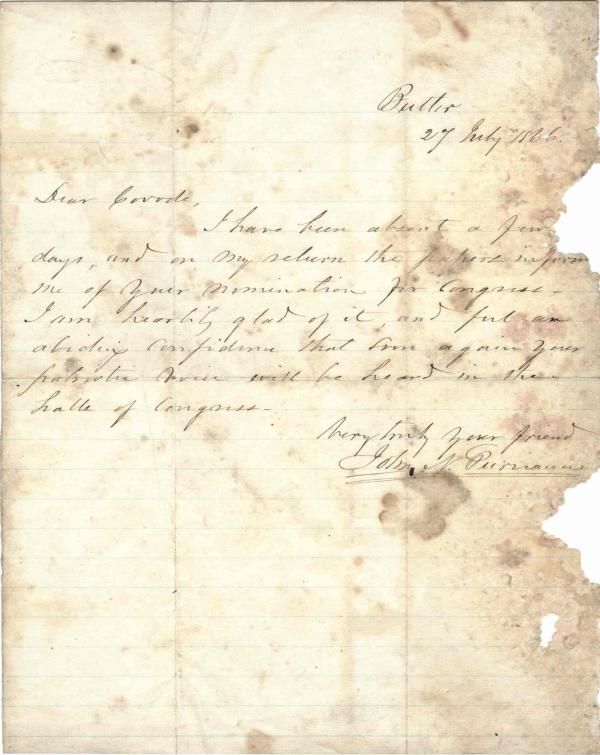 Butler
27 July 1866.
Dear Covode,
I have been absent a few
days, and on my return the papers inform
me of your nomination for Congress.
I am heartily glad of it, and feel an
abiding confidence that soon again your
patriotic voice will be heard in the
halls of Congress.
Very truly your friend
John N. Purviance